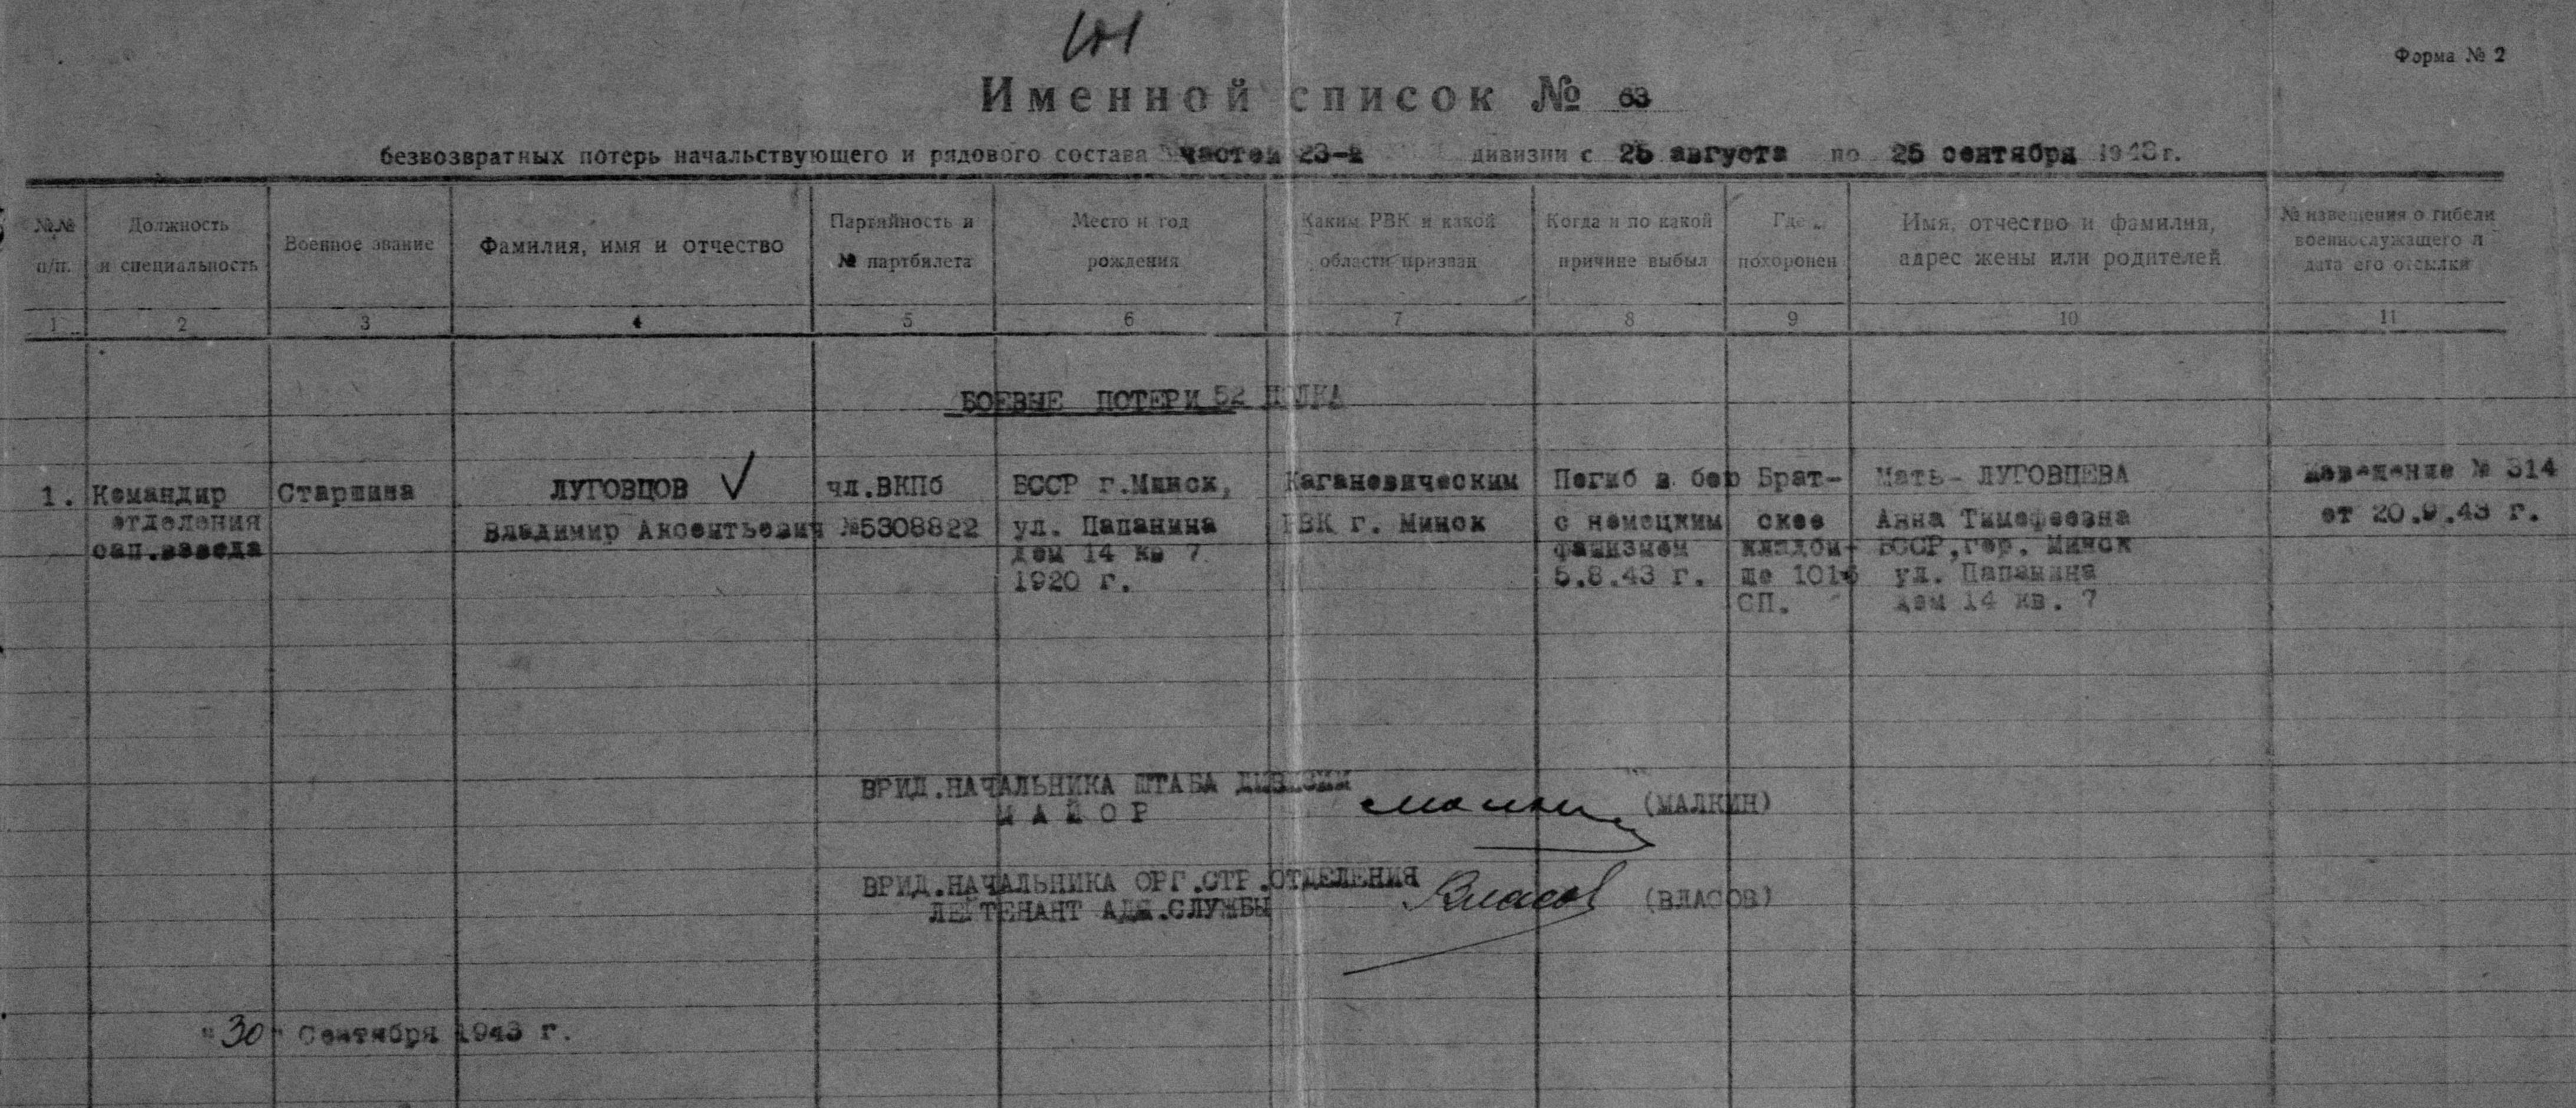 101
Форма № 2
Именной список № 63
безвозвратных потерь начальствующего и рядового состава частей 23-й дивизии с 25 августа по 25 сентября 1943 г.
№.№ п/п.
Должность и специальность
Военное звание
Фамилия, имя и отчество
Партийность и № партбилета
Место и год рождения
Каким РВК и какой области призван
Когда и по какой причине выбыл
Где похоронен
Имя, отчество и фамилия, адрес жены или родителей
№ извещения о гибели военнослужащего и дата его отсылки
1 2 3 4 5 6 7 8 9 10 11
БОЕВЫЕ ПОТЕРИ 52 ПОЛКА
1.
Командир
отделения
сап.взвода
Старшина
ЛУГОВЦОВ
Владимир Аксентьевич
чл.ВКПб
№5308822
БССР г.Минск,
ул. Папанина
дом 14 кв 7
1920 г.
Кагановическим
РВК г. Минск
Погиб в бою
с немецким
фашизмом
5.8.43 г.
Брат-
ское
кладби-
ще 1016
СП.
Мать- ЛУГОВЦЕВА
Анна Тимофеевна
БССР, гор. Минск
ул. Папанина
дом 14 кв. 7
Извещение № 314
от 20.9.43 г.
ВРИД.НАЧАЛЬНИКА ШТАБА ДИВИЗИИ
МАЙОР
(МАЛКИН)
ВРИД.НАЧАЛЬНИКА ОРГ.СТР.ОТДЕЛЕНИЯ
ЛЕЙТЕНАНТ АДМ.СЛУЖБЫ
Власов
(ВЛАСОВ)
"30" Сентября 1943 г.